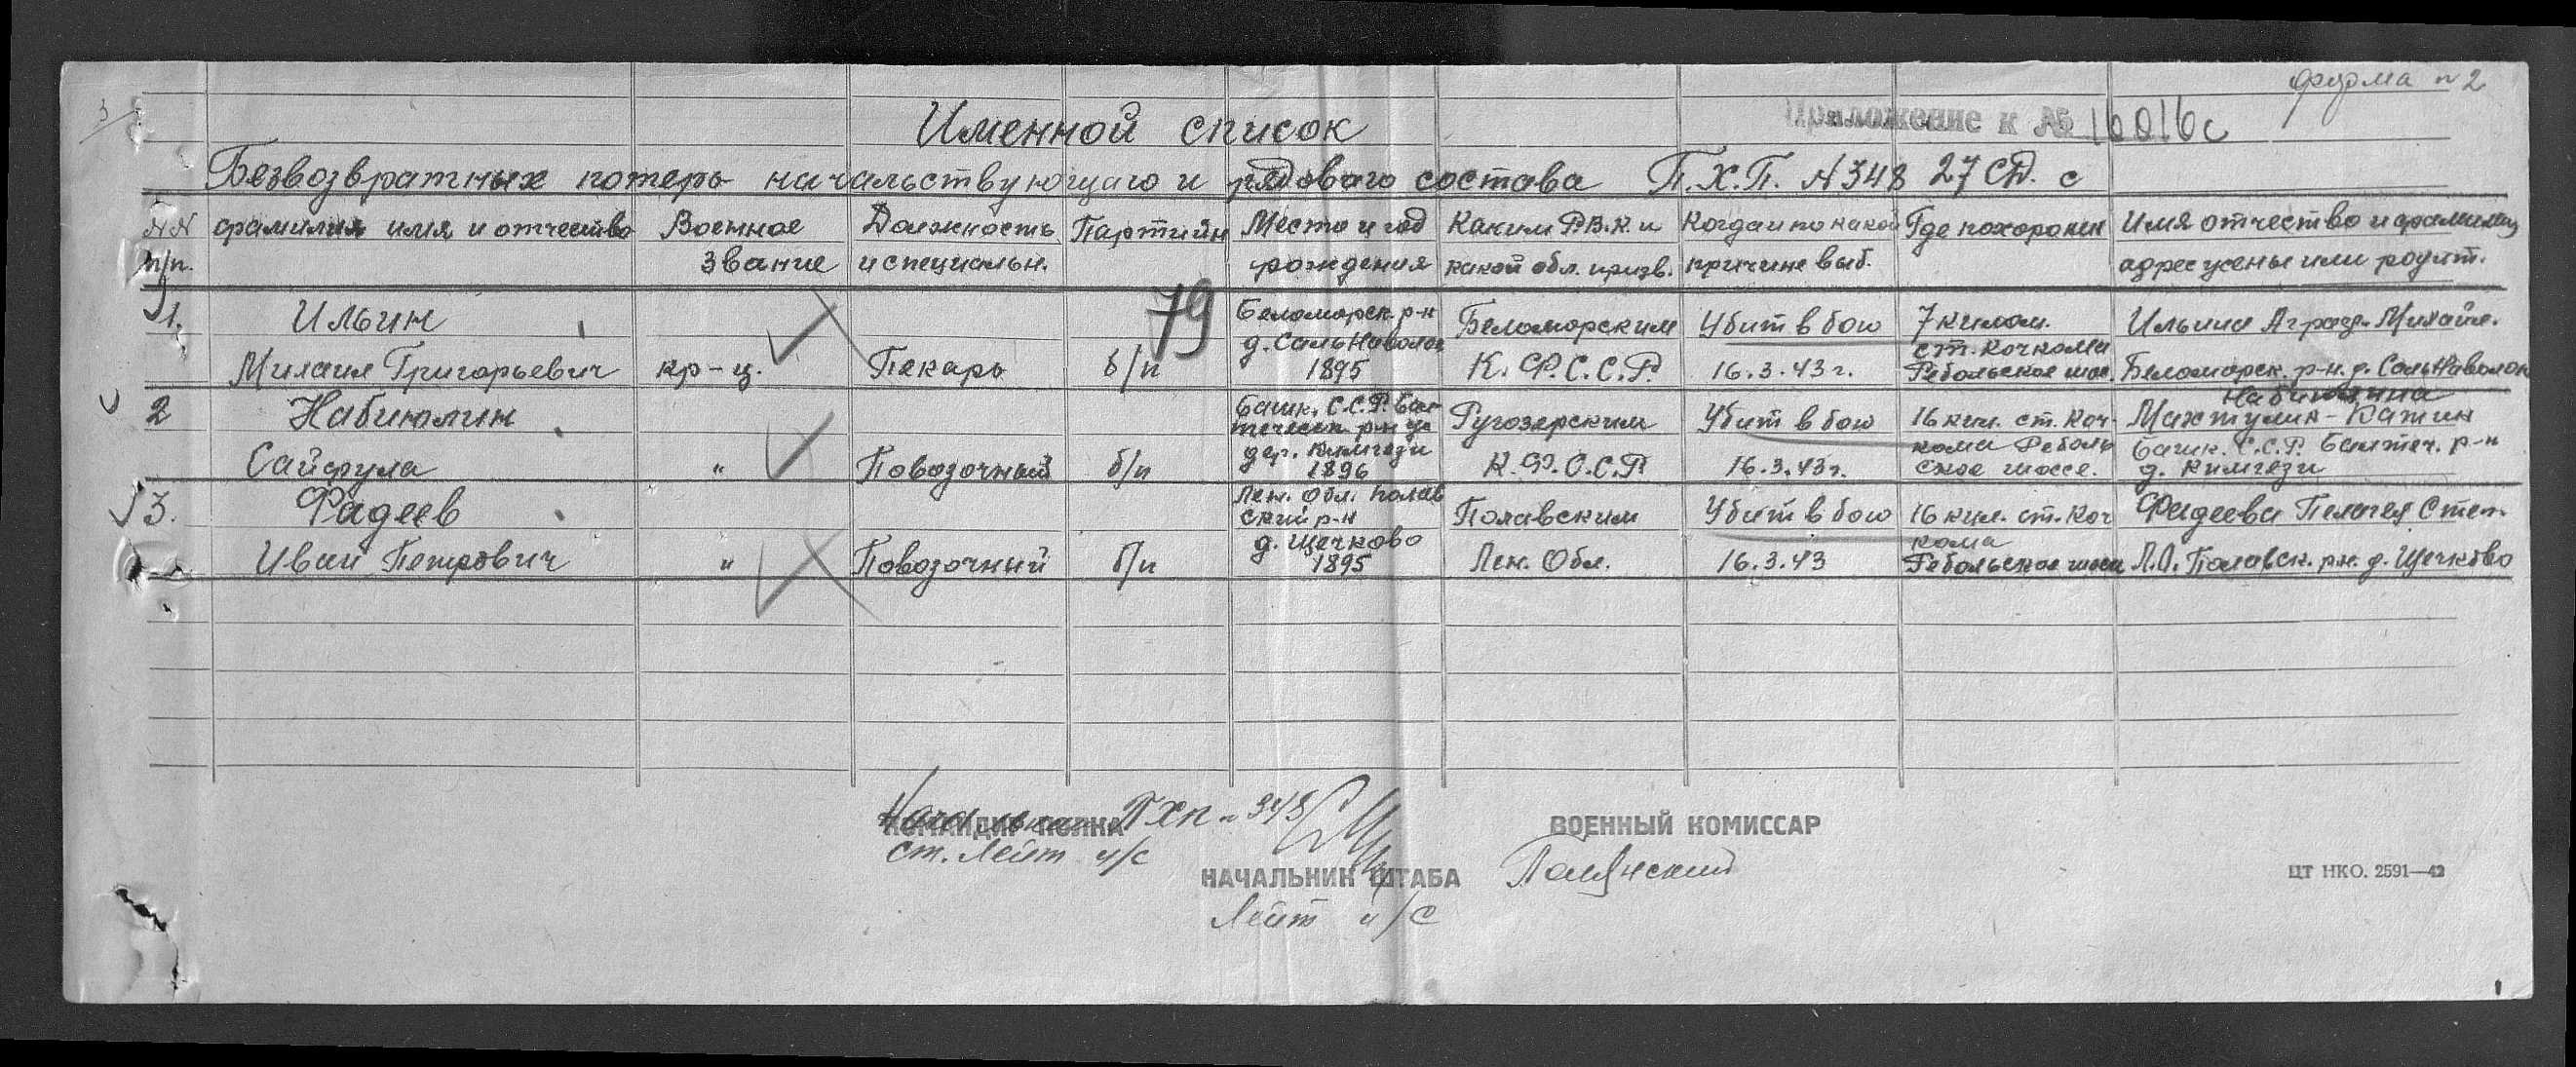 форма n 2
Приложение к № 16016с
Именной список
Безвозвратных потерь начальствующаго и рядоваго состава П.Х.П. N348 27 СД. с
NN п/п. фамилия имя и отчество Военное звание Должность и специальн. Партийн Место и год рождения Каким Р.В.К. и какой обл. призв. Когда и по какой причине выб. Где похоронен Имя отчество и фамилия адрес жены или родит.
79
1. Ильин Михаил Григорьевич кр-ц. Пекарь б/п Беломорск. р-н д. СальНаволок 1895 Беломорским К.Ф.С.С.Р. Убит в бою 16.3.43 г. 7 килом. ст. Кочкома Ребольское шос. Ильина Михайл. Беломорск. р-н. д. СальНаволок
2 Набиюлин Сайфула " Повозочный б/п Башк. С.С.Р. дер. Килигези 1896 Ругозерским К.Ф.С.С.Р. Убит в бою 16.3.43 г. 16 кил. ст. КочкомаРебольское шоссе. Набиюлина Башк. С.С.Р. р-н д. Килигези
3. Фадеев Иван Петрович " Повозочный б/п Лен. Обл. Полавский р-н д. Щечково 1895 Полавским Лен. Обл. Убит в бою 16.3.43 16 кил. ст. Кочкома Ребольское шосс Фадеева Пелагея Степ. Л.О. Полавск. р-н. д. Щечково
КОМАНДИР ПОЛКА
Начальник ПХП n 348
ст. Лейт и/с
ВОЕННЫЙ КОМИССАР
НАЧАЛЬНИК ШТАБА
Полянский
Лейт и/с
ЦТ НКО. 2591—42